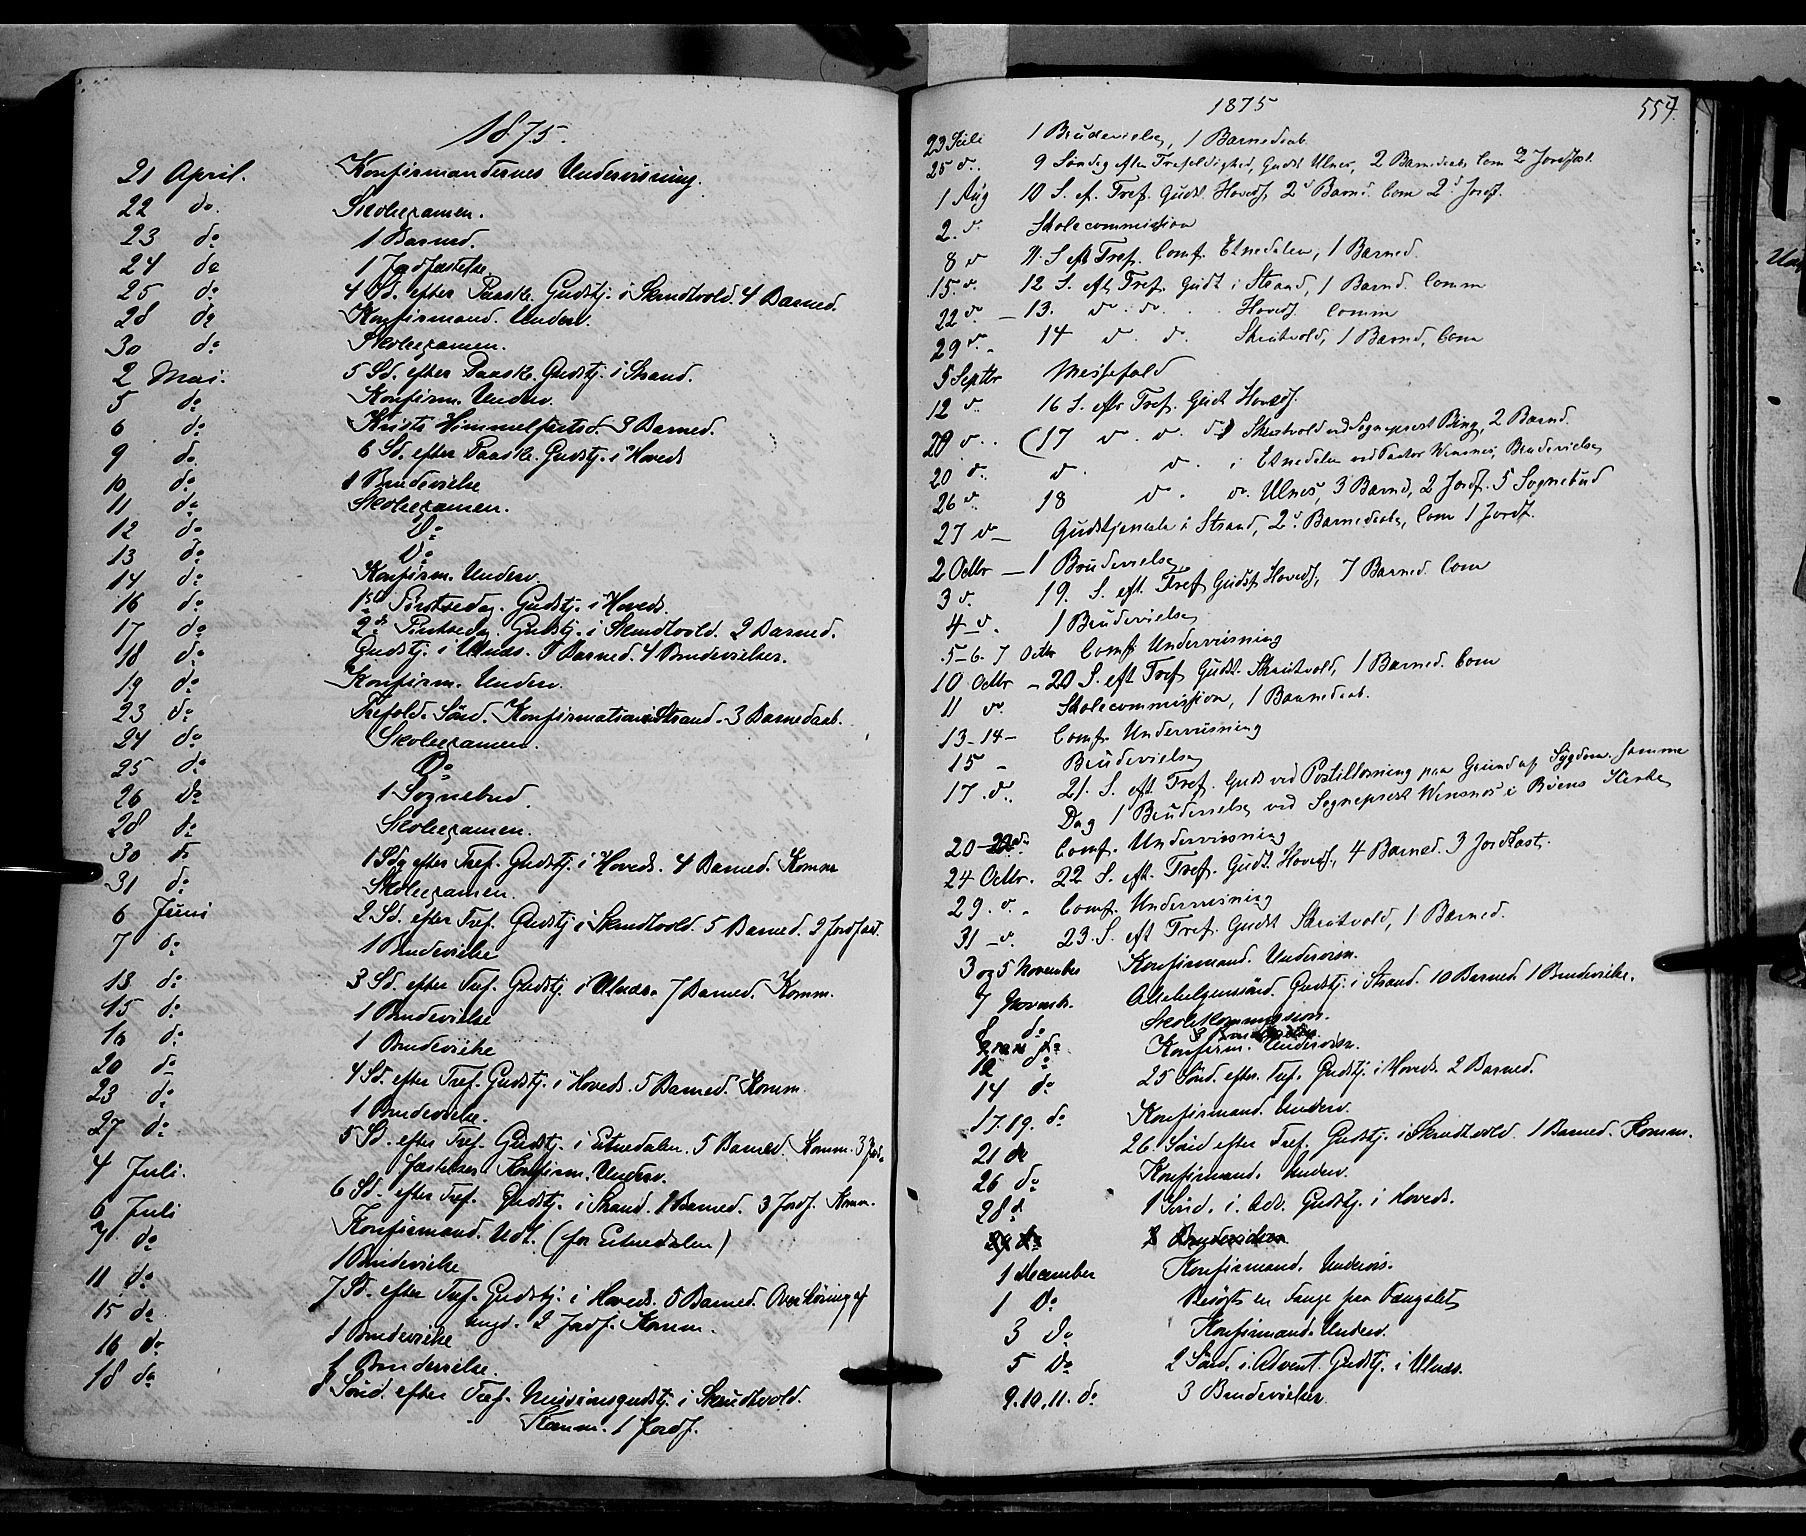 1875.
21 April. Konfirmandernes Undervisning.
22 do. Skoleexamen.
23 do 1 Barned.
24 do 1 Jordfæstelse.
25 do 4 Sd. efter Paaske. Gudstj. i Skrudtvold. 4 Barned.
28 do Konfirmand. Underv.
30 do Skoleexamen.
2 Mai. 5 Sd. efter Paaske. Gudstj. i Strand.
5 do Konfirm. Underv.
6 do. Kristi Himmelfartsd. Barned.
9 do. 6 Sd. efter Paaske. Gudstj. i Hoveds
10 do. 1 Brudevielse
11 do Skoleexamen.
12 do Do
13 do Do
14 do Konfirm. Underv.
16 do 1ste Pintsedag. Gudstj. i Hoveds.
17 do 2den Pintsedag. Gudstj. i Skrudtvold. 2 Barned.
18 do Gudstj. i Ulnæs. Barned. 4 Brudevielser.
19 do Konfirm. Underv.
23 do. Trefold. Sönd. Konfirmation i Strand. 3 Barnedaab.
24 do Skoleexamen.
25 do Do
26 Do 1 Sognebud.
28 do Skoleexamen.
30 do 1 Sdg efter Tref. Gudstj. i Hoveds. 4 Barned. Komm
31 do Skoleexamen.
6 Juni 2 Sd. efter Tref. Gudstj. i Skrudtvold. 5 Barned. 2 Jordfæst.
7 do 1 Brudevielse
13 do 3 Sd. efter Tref. Gudstj. i Ulnæs. 7 Barned. Komm.
15 do. 1 Brudevielse
16 do 1 Brudevielse
20 do 4 Sd. efter Tref. Gudstj. i Hoveds. 5 Barned. Komm.
23 do 1 Brudevielse.
27 do 5 Sd. efter Tref. Gudstj. i Etnedalen. 5 Barned. Komm. 3 Jord-
fæstelser Konfirm. Underv.
4 Juli. 6 Sd. efter Tref. Gudstj. i Strand. Barned. 3 Jordf. Komm.
6 Juli Konfirmand. Udt. (for Etnedalen)
7 do 1 Brudevielse
11 do 7 Sd. efter Tref. Gudstj. i Hoveds. 5 Barned. Overhöring af
Ungd. 2 Jordf. Komm.
15 do 1 Brudevielse
16 do 1 Brudevielse.
18 do 8 Sönd. efter Tref. Missionsgudstj. i Skrudtvold.
Komm. 1 Jordf.
1875 557
23 Juli 1 Brudevielse, 1 Barnedaab
25 d. 9 Söndag efter Trefoldighed, Gudst Ulnes, 2 Barnedaab, Com 2 Jordfæst.
1 Aug 10 S. ef. Tref. Gudst. Hoveds, 2 Barned. Com 2 Jordf.
2. d. Skolecommission
8 d 11. S eft Tref. Comf. Etnedalen, 1 Barned.
15. d. 12 S. eft Tref. Gudt i Strand, 1 Barnd. Comm
22 d. – 13. d. d. Hoveds Comm
29 d. 14 d. d. Skrutvold, 1 Barned, Com
5 Septbr Messefald
12 d. 16 S. eftr Tref. Gudt Hoveds.
20 d. (17 d. d. Skrutvold ved Sogneprest Bing, 2 Barnd.
20 d. d. d. i Etnedalen ved Pastor Wensnes, Brudevielse
26 d. 18 d. d. Ulnes, 3 Barnd, 2 Jordf. 5 Sognebud
27 d – Gudstjeneste i Strand, 2 Barnedaab, Com 1 Jordf.
2 Octbr – 1 Brudevielse
3 d. 19. S. eft. Tref Gudst Hoveds, 7 Barned. Com
4 – d. 1 Brudevielse
5–6. 7 Octbr Comf. Undervisning
10 Octbr – 20 S. eft Tref Gudst. Skrutvold, 1 Barned. Com
11 d. Skolecommission, 1 Barnedaab.
13–14– Comf. Undervisning
15 – Brudevielse
17. d. 21. S. eft Tref. Gudt ved Postillæsning paa Grund af Sygdom. samme
Dag 1 Brudevielse ved Sogneprest Wensnes i Bøens Kirke
20–22 d. Comf. Undervisning
24 Octbr. 22 S. eft. Tref. Gudt. Hoveds, 4 Barned. 3 Jordfæst.
29. d. Comf. Undervisning
31 – d. 23. S. eft Tref. Gudst Skrutvold, 1 Barned.
3 og 5 November Konfirmand. Undervisn.
7 Novembr. Allehelgensönd. Gudstj. i Strand. 10 Barned. 1 Brudevielse.
8 do Skolekommission.
12 do Konfirm. Undervisn.
14 do 25 Sönd. efter Tref. Gudstj. i Hoveds. 2 Barned.
17. 19. do Konfirmand. Underv.
21 do 26. Sönd efter Tref. Gudstj. i Skrudtvold. 1 Barned. Komm.
26 do Konfirmand. Underv.
28 do 1 Sönd. i Adv. Gudstj. i Hoveds.
Brudevielser
1 December Konfirmand. Undervis.
1 Do Besögt en Fange paa Fængslet
3 Do Konfirmand. Underv.
5 Do 2 Sönd. i Advent. Gudstj. i Ulnæs.
9. 10. 11. do 3 Brudevielser